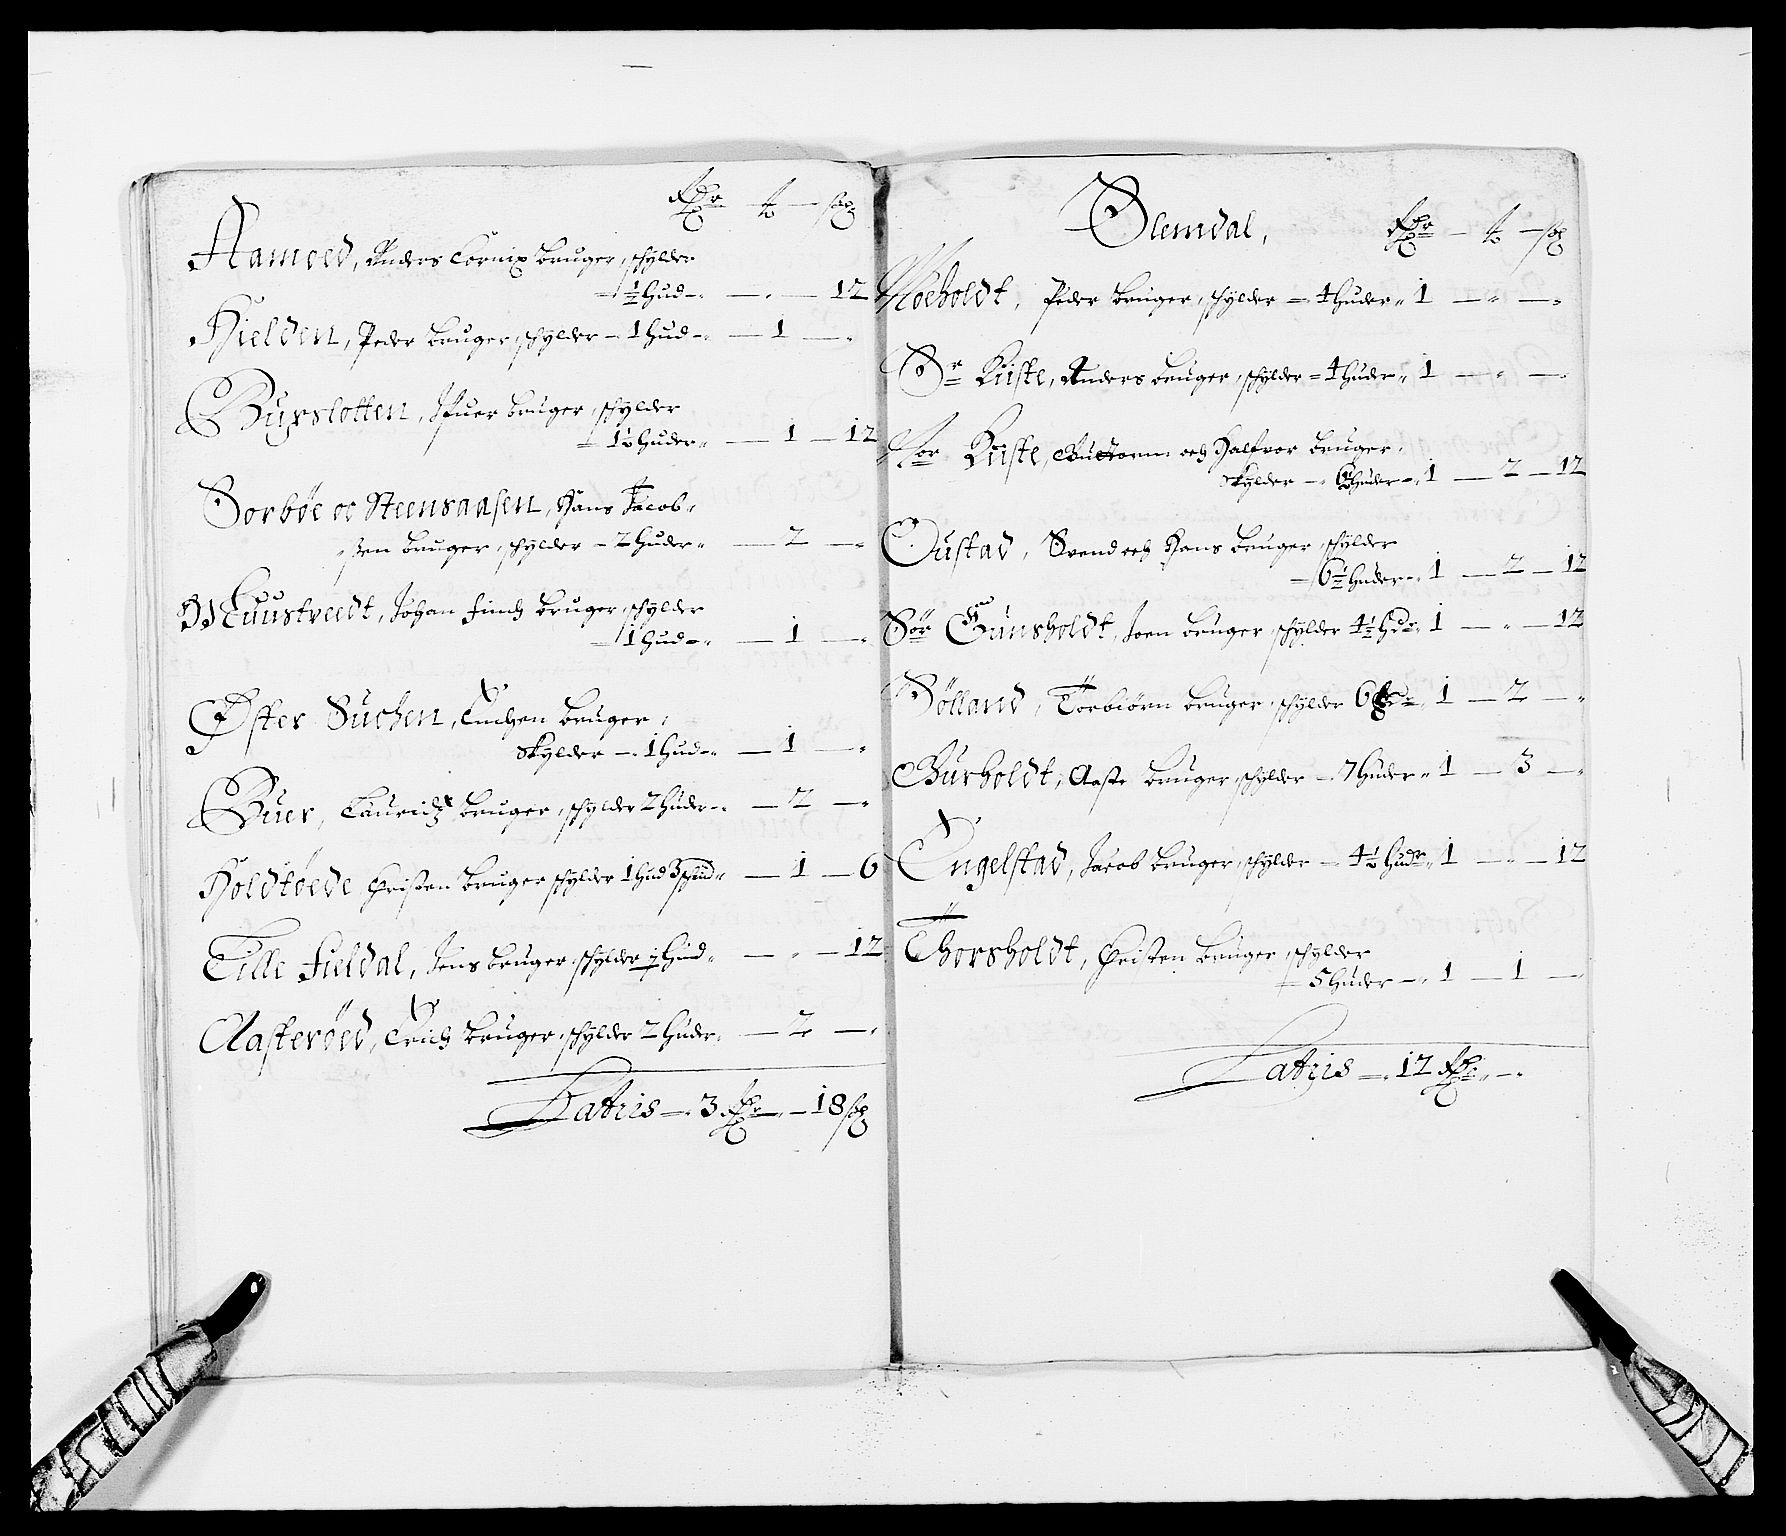 Rdr — ₻ — sk
Aamoed, Anders Cornix bruger, schylder
— ½ Hud —„ — „ — 12
Kielden, Peder bruger, schylder — 1 Hud —„ — 1 — „
Buxslotten, Ifuer bruger, schylder
— 1½ Huder „ — 1 — 12
Sorbøe oc Steensaasen, Hans Jacob-
sen bruger, schylder — 2 Huder „ — 2 — „
Johan Finch bruger, schylder
— 1 Hud —„ — 1 — „
Øster Suchen, bruger,
skylder — 1 Hud —„ — 1 — „
Buer, Lauridtz bruger, schylder 2 Huder —„ — 2 — „
Holdtøede Christen bruger schylder 1 Hud 3 skind „ — 1 — 6
Lille Fieldal, Jens bruger, schylder ½ Hud „ — „ — 12
Aasterøed, Erich bruger, schylder 2 Huder „ — 2 — „
Latus — 3 Rdr — 18 sk
Slemdal, Rdr — ₻ — sk
Moeholdt, Peder bruger, schylder — 4 Huder „ 1 — „ — „
Sr Kiiste, Anders bruger, schylder = 4 Huder „ 1 — „ — „
Nor Kiiste, Guttorm och Halfvor bruger,
skylder — 6½ Huder —„ 1 — 2 — 12
Oustad, Svend och Hans bruger, schylder
— 6½ Huder —„ 1 — 2 — 12
Sør Gunsholdt, Joen bruger schylder 4½ Hdr „ 1 — „ — 12
Sølland, Torbiörn bruger, schylder 6 Hdr „ 1 — 2 — „
Burholdt, Aaste bruger, schylder — 7 Huder „ 1 — 3 — „
Engelstad, Jacob bruger, schylder — 4½ Hudr „ 1 — „ — 12
Thorsholdt, Christen bruger, schylder
— 5 Huder —„ 1 — 1 — „
Latus — 12 Rdr „ — „